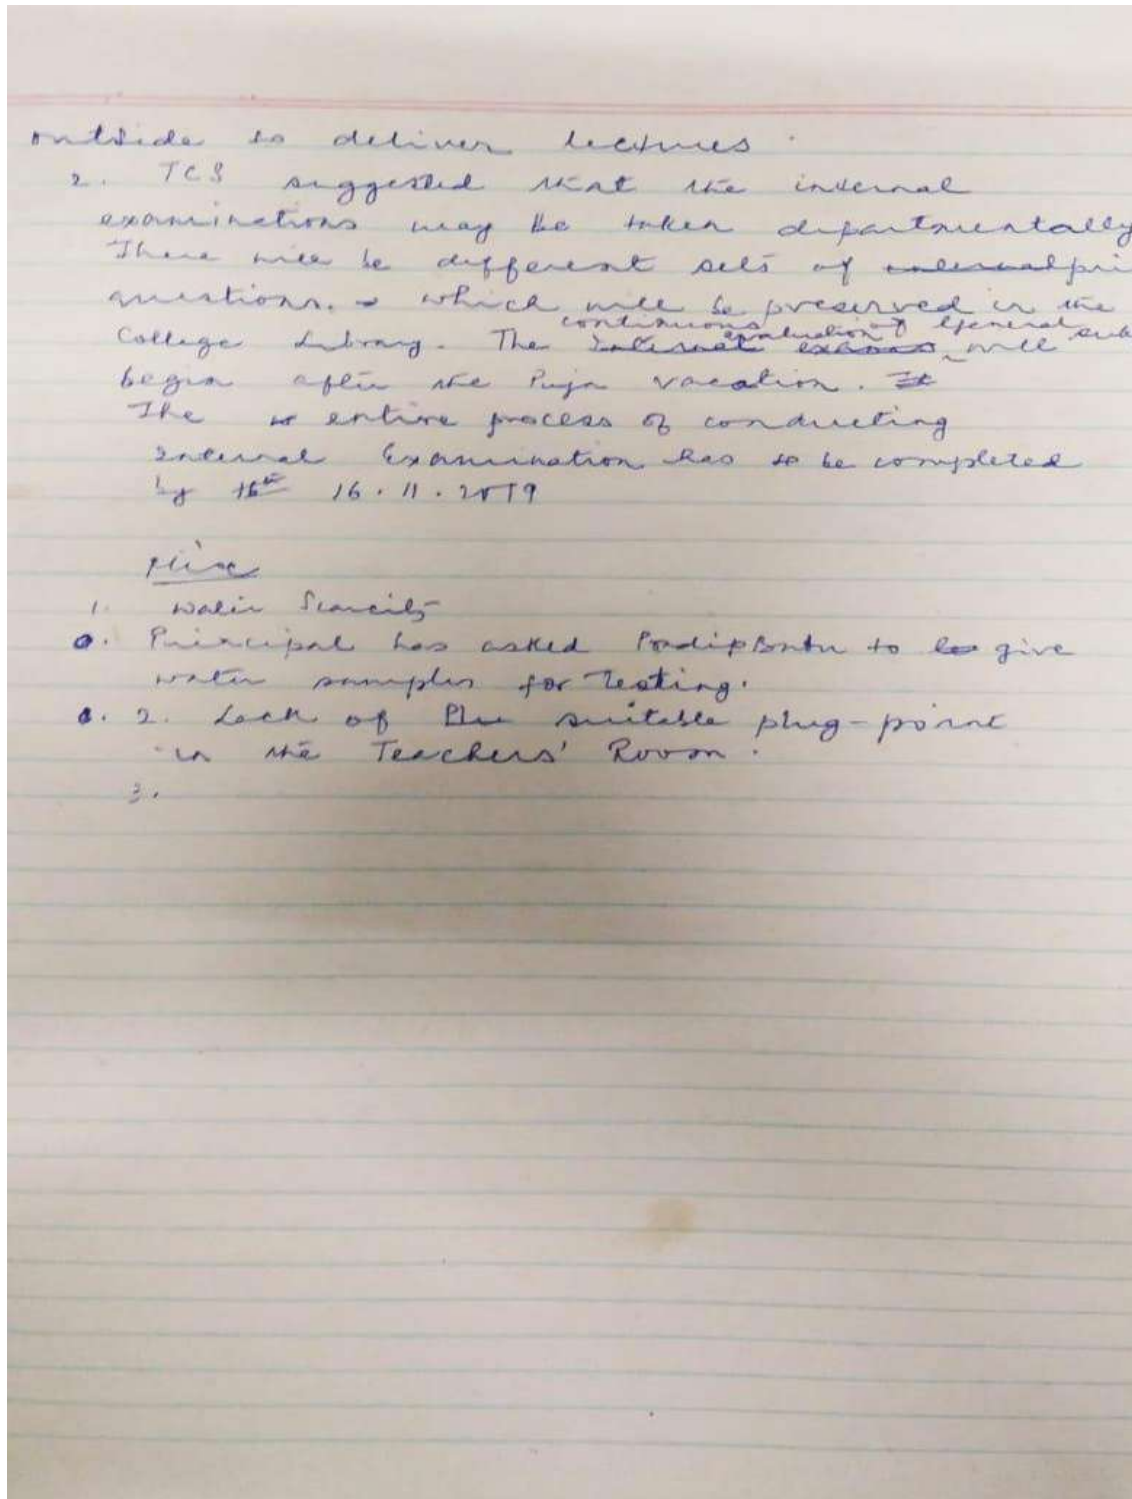 outside to deliver lectures.
2. TCS suggested that the internal
examinations may be taken departmentally
There will be different sets of internal pri
questions. which will be preserved in the
continuous evaluation of General sub
College Library. The Internal exams will
begin after the Puja vacation. It
The entire process of conducting
Internal Examination has to be completed
by 16th 16.11.2019
Misc
1. Water Scarcity
Principal has asked to give
water samples for Testing.
2. Lack of suitable plug-point
in the Teachers' Room.
3.